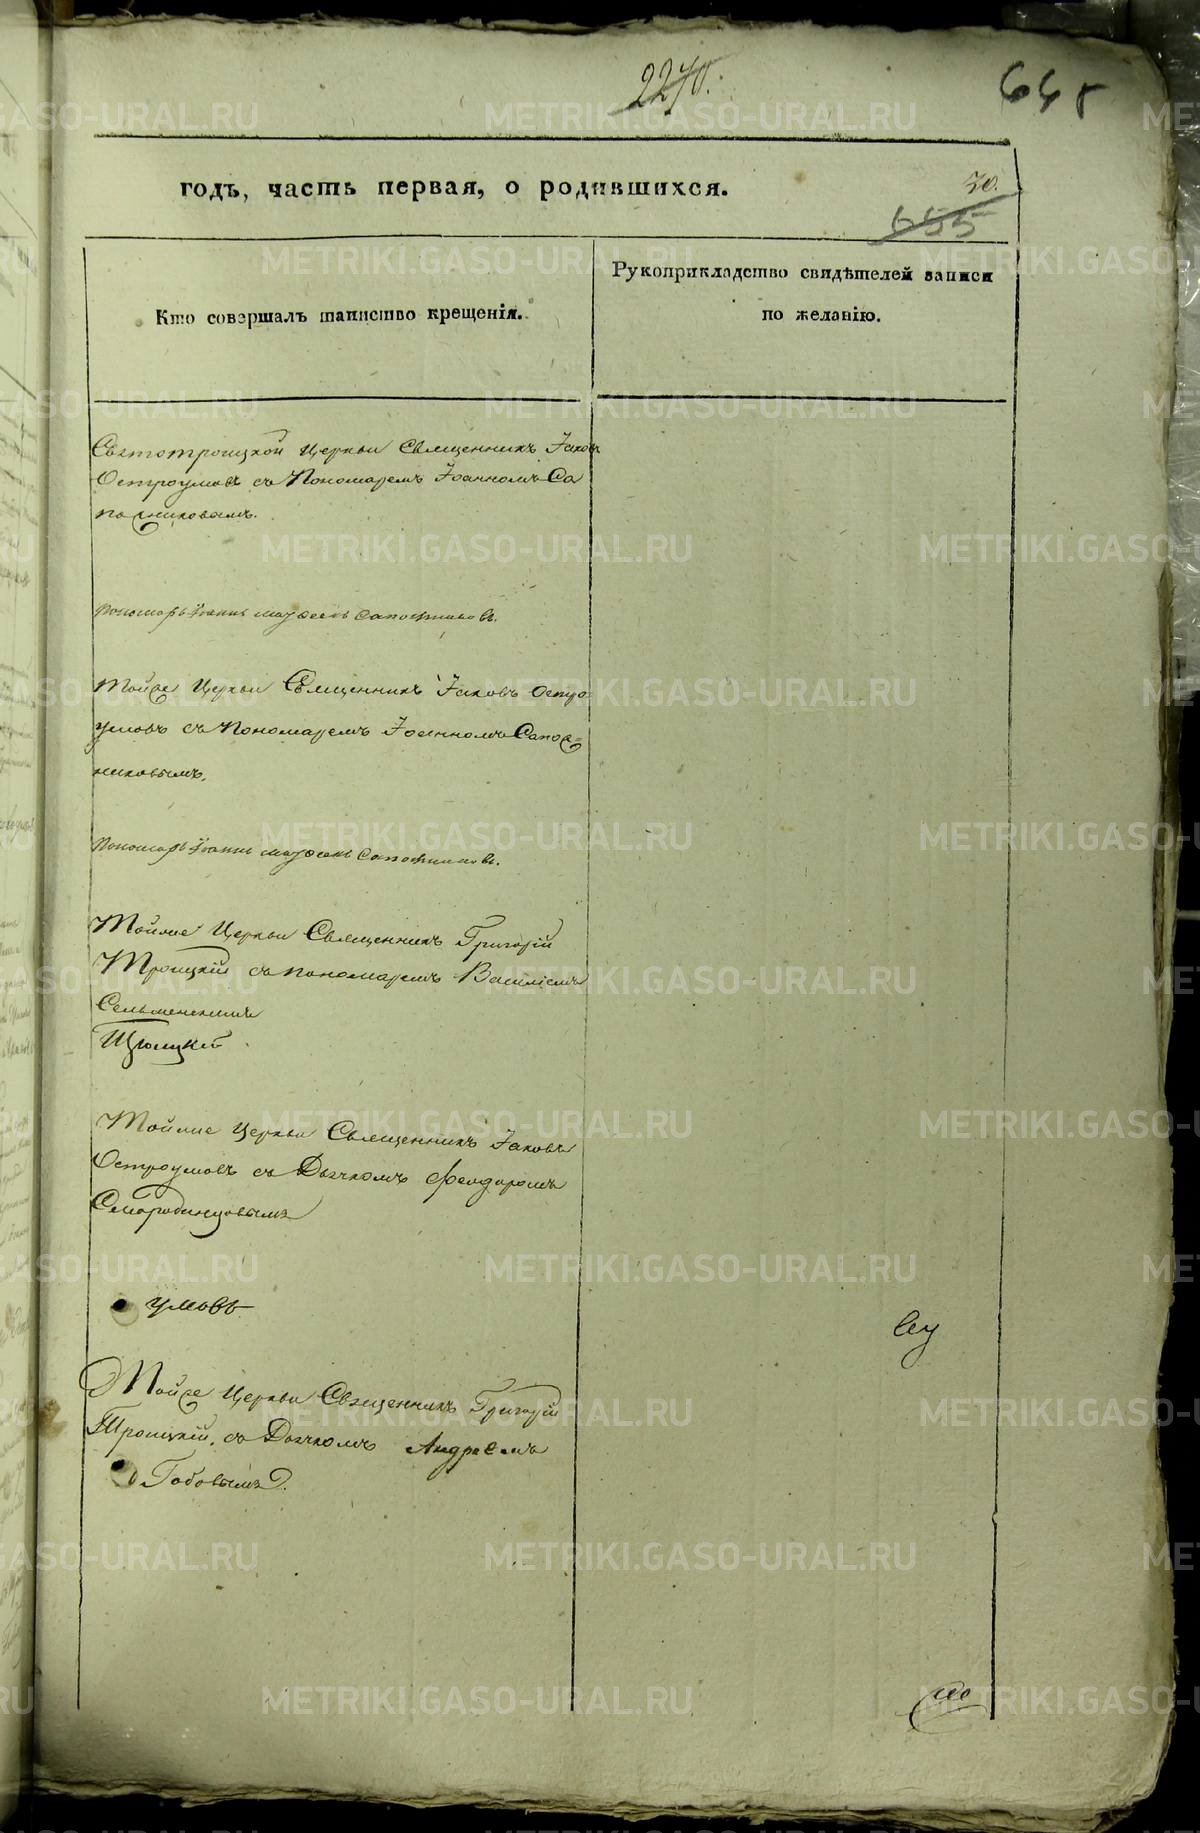 2270.
648
годъ, часть первая, о родившихся.
70.
655
Кто совершалъ таинство крещенія.
Рукоприкладство свидѣтелей записи
по желанію.
Святотроицкой Церкви Священникъ Іаковъ
Остроумовъ съ Пономаремъ Іоанномъ Са
пожниковымъ.
Пономарь Іоаннъ Сапожниковъ.
Тойже Церкви Священникъ Іаковъ Остро
умовъ съ Пономаремъ Іоанномъ Сапож=
никовымъ.
Пономарь Іоаннъ Сапожниковъ.
Тойже Церкви Священникъ Григорій
Троицкій съ пономаремъ Василіемъ
Сельменскимъ
Троицкій
Тойже Церкви Священникъ Іаковъ
Остроумовъ съ Дьячкомъ Феодоромъ
Смородинцовымъ
умовъ
Тойже Церкви Священникъ Григорій
Троицкій, съ Дьячкомъ Андреемъ
METRIKI.GASO-URAL.RU